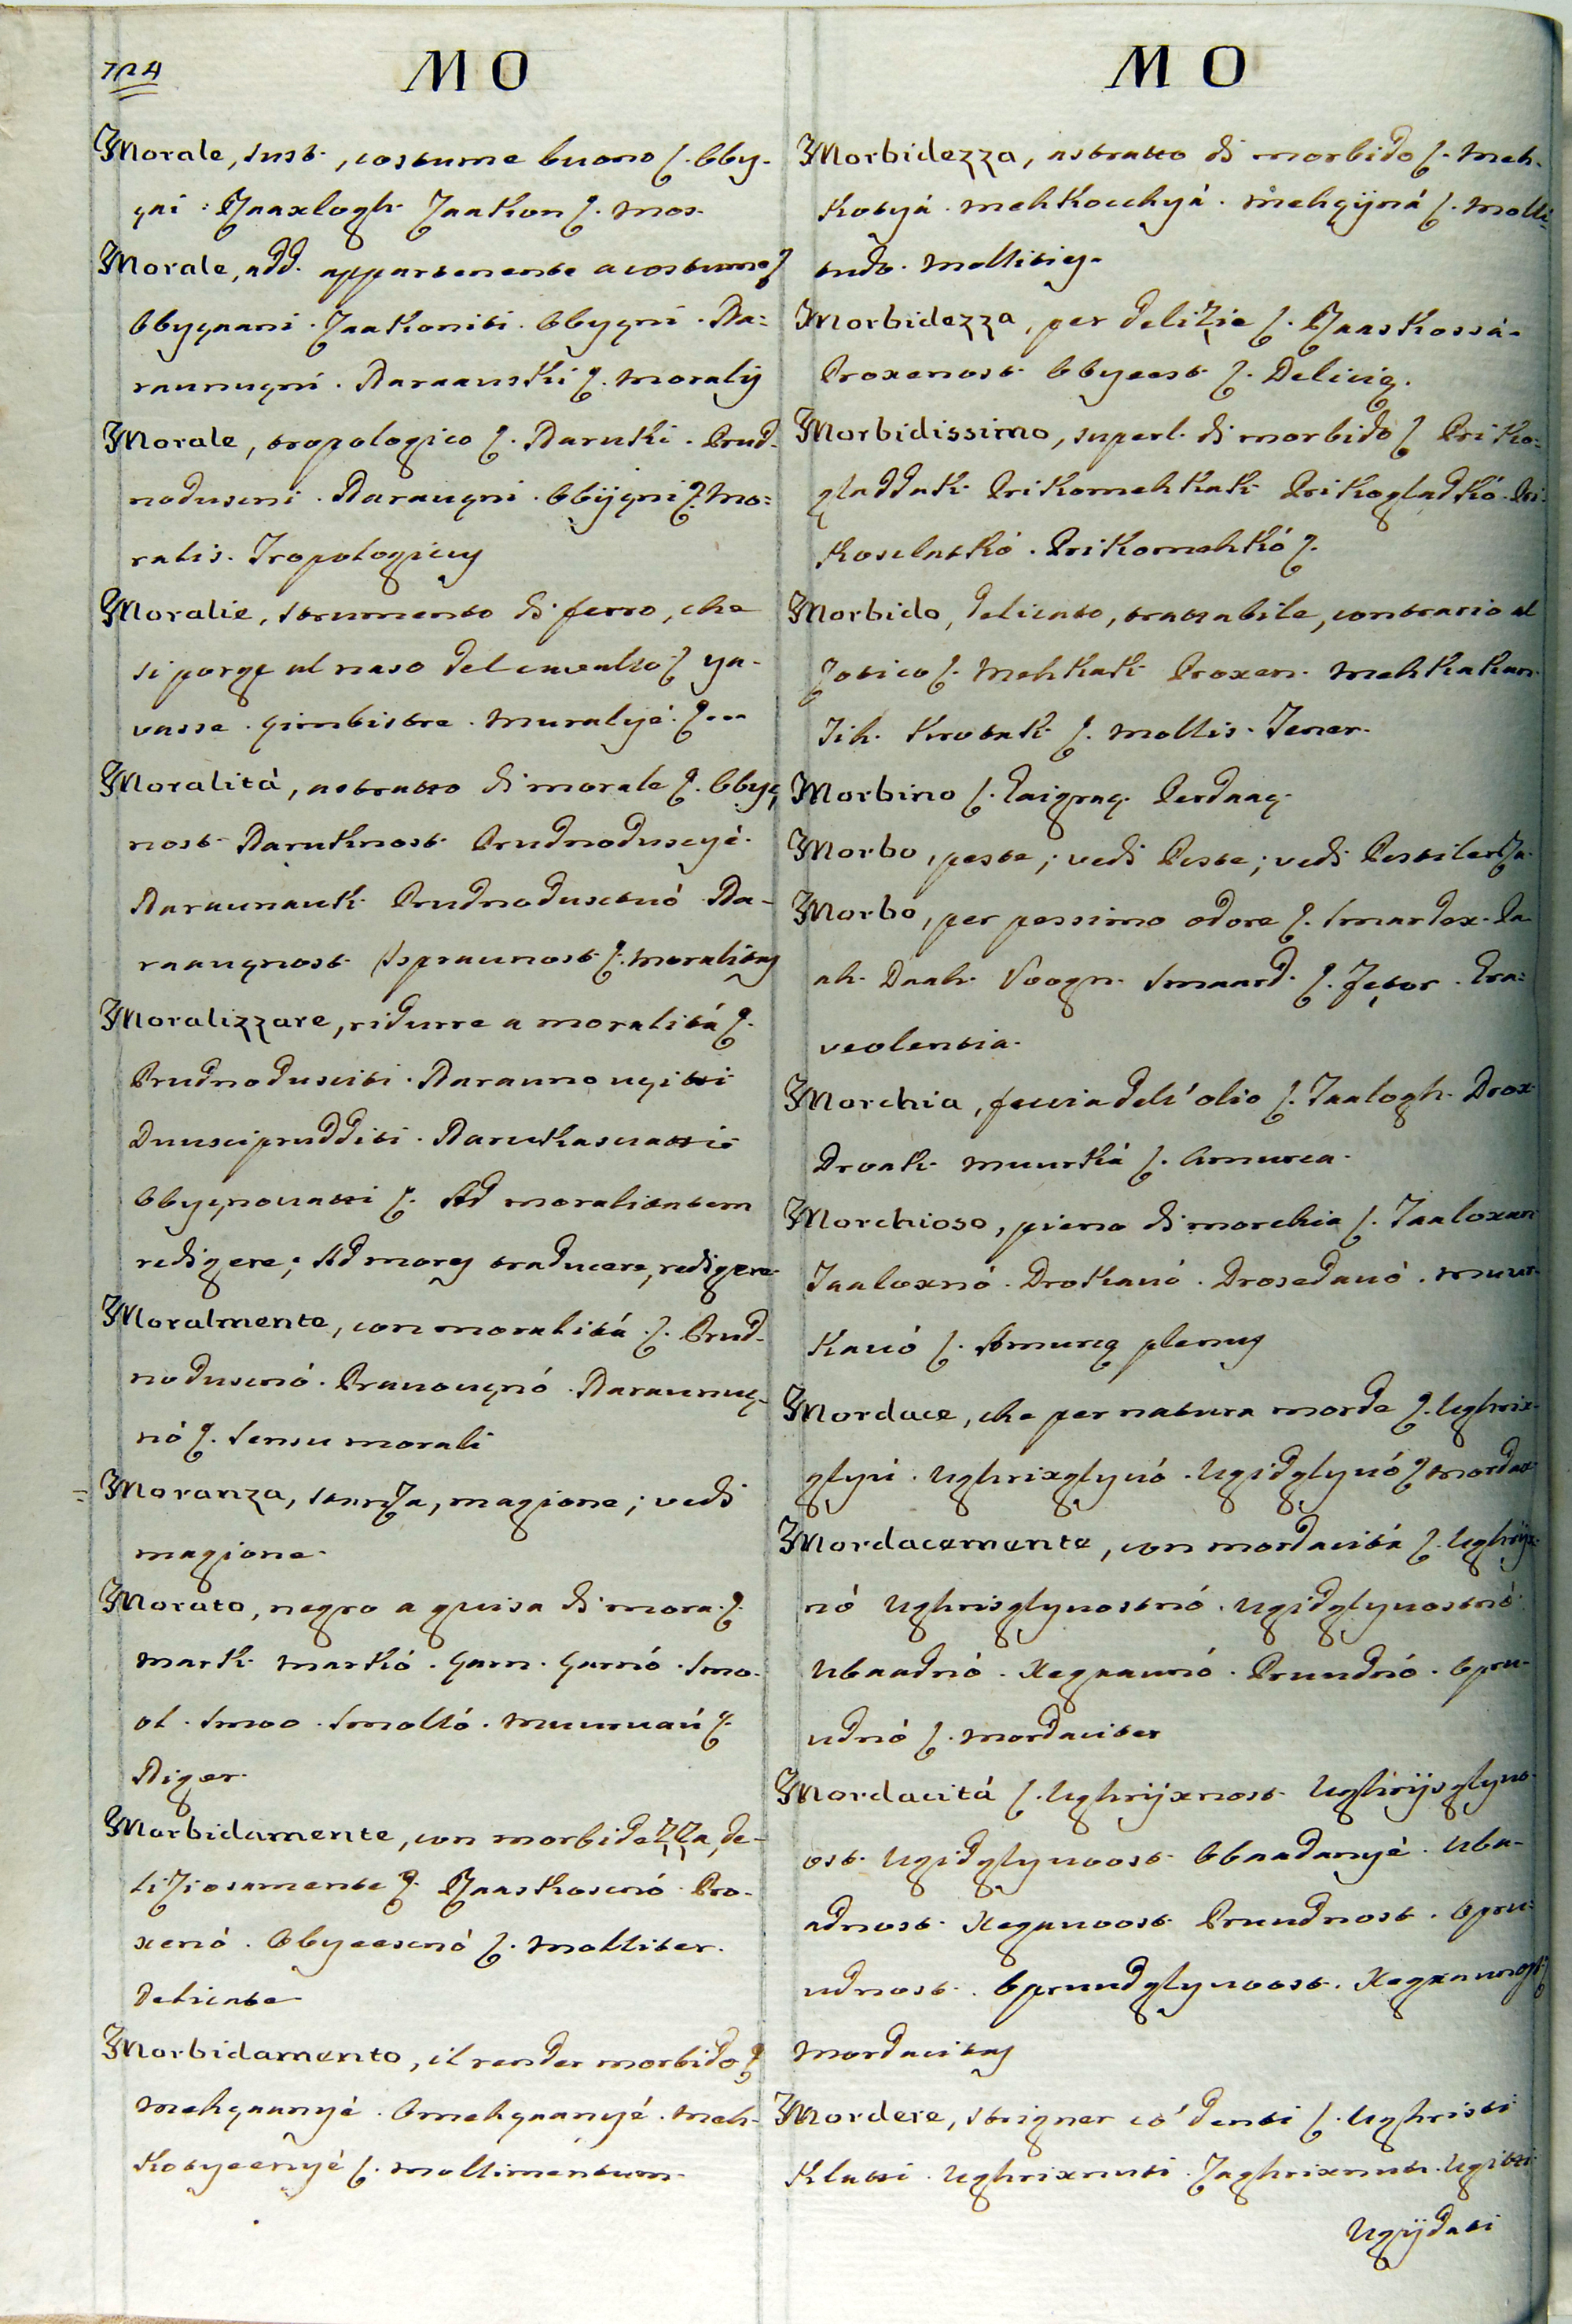 724
MO
Morale, sust., costume buono ſ. Obby-
çai. Naaxlogh. Zaakon ſ. Mos.
Morale, add. appartenente a costume ſ
Obyçaani. Zaakoniti. Obyçni. Na=
raunuçni. Naraauski ſ. Moralis
Morale, tropologico ſ. Naruski. Ᵽrud-
noduscni. Narauçni. Obijçni ſ. Mo=
ralis. Tropologicus
Moralie, strumento di ferro, che
si porge al naso del cavallo ſ ya-
vasse. çimbistre. Muralyé. ſ...
Moralità, astratto di morale ſ. Obyç,
nost. Naruknost. Prudnoduscyé.
Naraunauk. Prudnodusctuó. Na-
raauçnost. Ispraunost ſ. Moralitas
Moralizzare, ridurre a moralità ſ.
Prudnodusciti. Narauno uçitti
Duuscipudditi. Naruckascuatti
Obyçnouatti ſ. Ad moralitatem
redigere; Ad mores traducere, redigere.
Moralmente, con moralità ſ. Prud-
noduscnó. Prauouçnó. Naraunuç-
nó ſ. Sensu morali
= Moranza, stanza, magione; vedi
magione.
Morato, negro a guisa di mora ſ.
Mark. Markó. çarn. çarnó. Smo-
ol. Smoo. Smolló. Muuruaú ſ.
Niger.
Morbidamente, con morbidezza, de-
liziosamente ſ. Naaskoscnó. Pro-
xenó. Obyeescnó ſ. Molliter.
Delicate
Morbidamento, il render morbido ſ
Mehçaanyé. Omehçaanyé. Meh-
kotyeenyé ſ. Mollimentum.
MO
Morbidezza, astratto di morbido ſ. Meh-
kotyá. Mehkocchyá. Mehçijná ſ. Molli=
tudo. Mollities.
Morbidezza, per delizie ſ. Naaskossá.
Proxenost. Obyeest ſ. Deliciæ.
Morbidissimo, superl. di morbido ſ Priko-
gladdak. Prikomehkak. Prikogladkó. Pri-
koslatkó. Prikomehkó ſ.
Morbido, delicato, trattabile, contrario al
zotico ſ. Mehkak. Proxen. Mehkakan.
Tih. Krotak ſ. Mollis. Tener.
Morbino ſ. Perdaaç.
Morbo, peste; vedi Peste; vedi Pestilenza.
Morbo, per pessimo odore ſ. Smardex. Da-
ah. Daah. Voogn. Smaard. ſ. Fetor. Gra=
veolentia.
Morchia, feccia dell'olio ſ. Taalogh. Drox.
Droak. Muurká ſ. Amurca.
Morchioso, pieno di morchia ſ. Taaloxan
Taaloxnó. Drokauó. Drosedauó. Muur-
kauó ſ. Amurcæ plenus
Mordace, che per natura morde ſ. Ughrix-
glyú. Ughrixglyuó. Ugidglyuó ſ Mordax
Mordacemente, con mordacità ſ. Ughrijx-
nó Ughrisglyuostnó. Ugidglyuostnó.
Ubaadnó. Xegaaunó. Pruudnó. Opru-
udnó ſ. Mordaciter
Mordacità ſ. Ughrijxnost. Ughrijsglyuo-
ost. Ugidglyuoost. Obaadanyé. Uba-
adnost. Xegauoost. Pruudnost. Opru-
udnost. Opruudglyuoost. Xegaaunost ſ
Mordacitas
Mordere, strigner co' denti ſ. Ughristi
Klatti. Ughrixnuti. Zaghrixnuti. Ugitti
Ugijdati